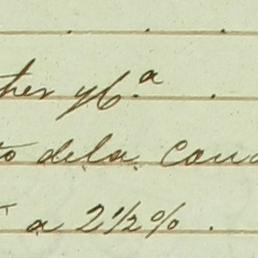 ther y Cª.
to dela Cond
a 2½%.